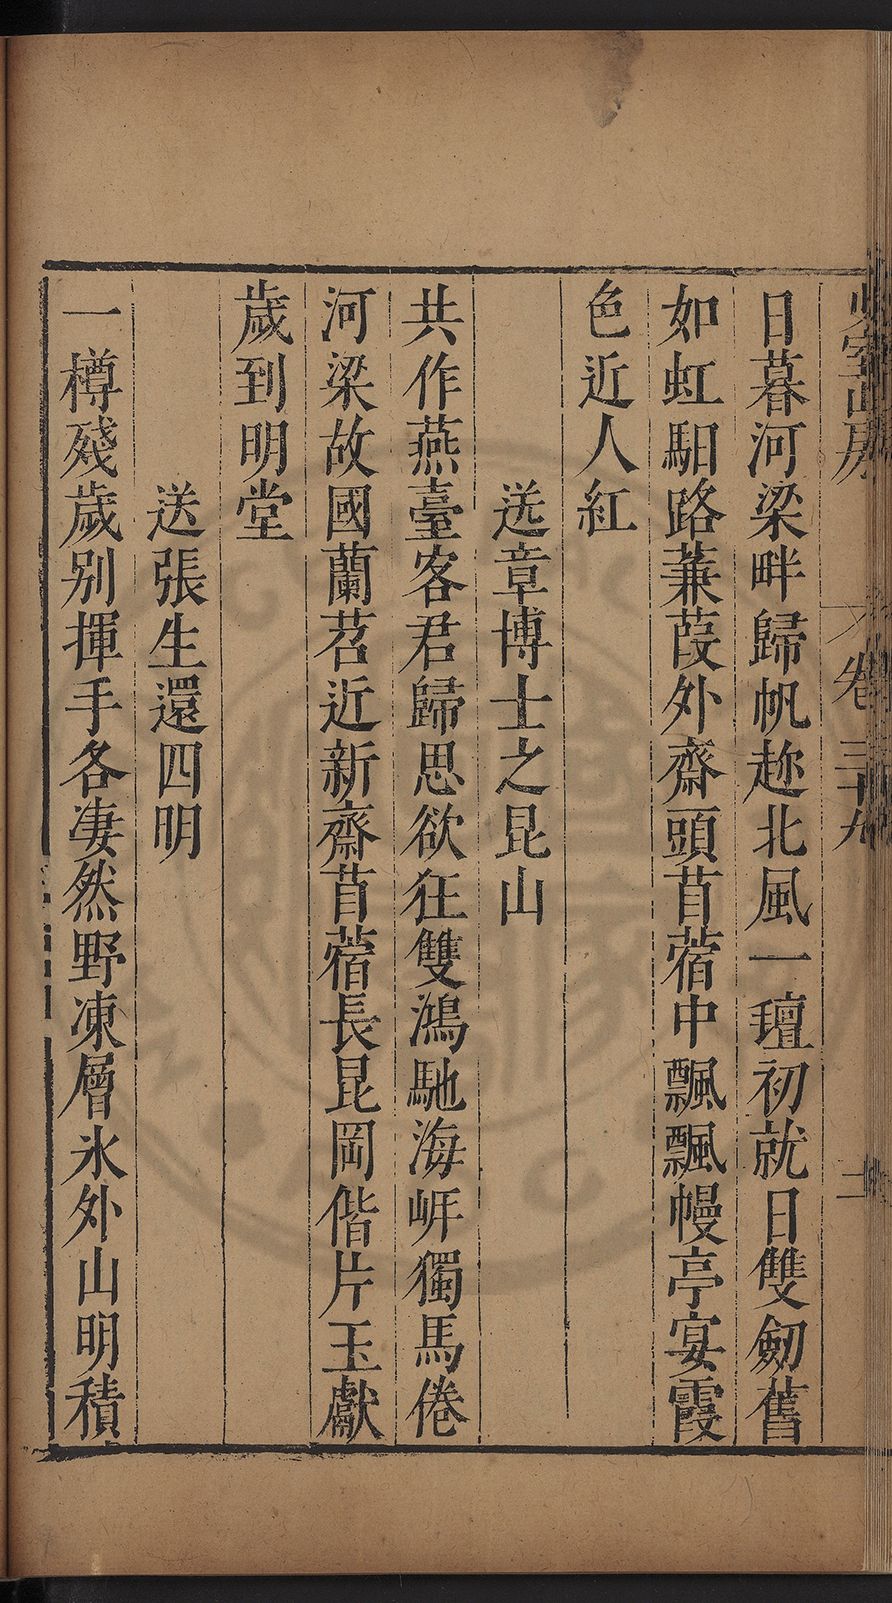 卷三十九
日暮河梁畔歸帆趂北風一璮初就日雙劒舊
如虹馹路蒹葭外齋頭苜蓿中飄飄幔亭宴霞
色近人紅
送章博士之昆山
共作燕臺客君歸思欲狂雙鴻馳海岸獨馬倦
河梁故國蘭苕近新齋苜蓿長昆岡偕片玉獻
歲到明堂
送張生還四明
一樽殘歲别揮手各凄然野凍層氷外山明積